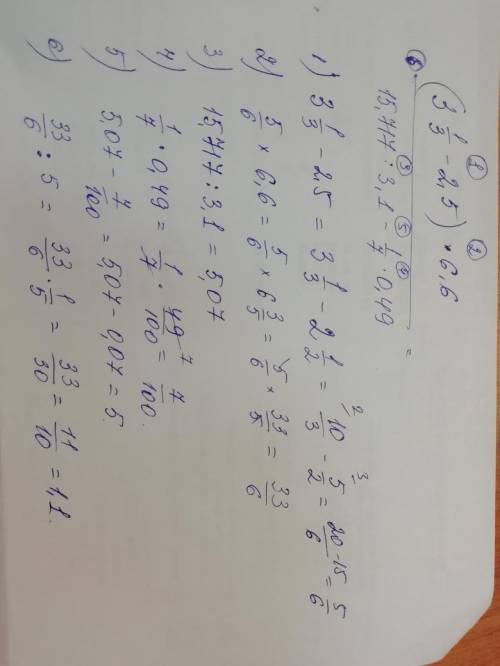 (3 1/3 - 2,5) * 6,6
15,717 : 3,1 - 1/7 · 0,49 =
1) 3 1/3 - 2,5 = 3 1/3 - 2 1/2 = 10/3 - 5/2 = 20-15/6 = 5/6
2) 5/6 * 6,6 = 5/6 * 6 3/5 = 5/6 * 33/5 = 33/6
3) 15,717 : 3,1 = 5,07
4) 1/7 · 0,49 = 1/7 · 49/100 = 7/100.
5) 5,07 - 7/100 = 5,07 - 0,07 = 5.
6) 33/6 : 5 = 33/6 · 1/5 = 33/30 = 11/10 = 1,1.